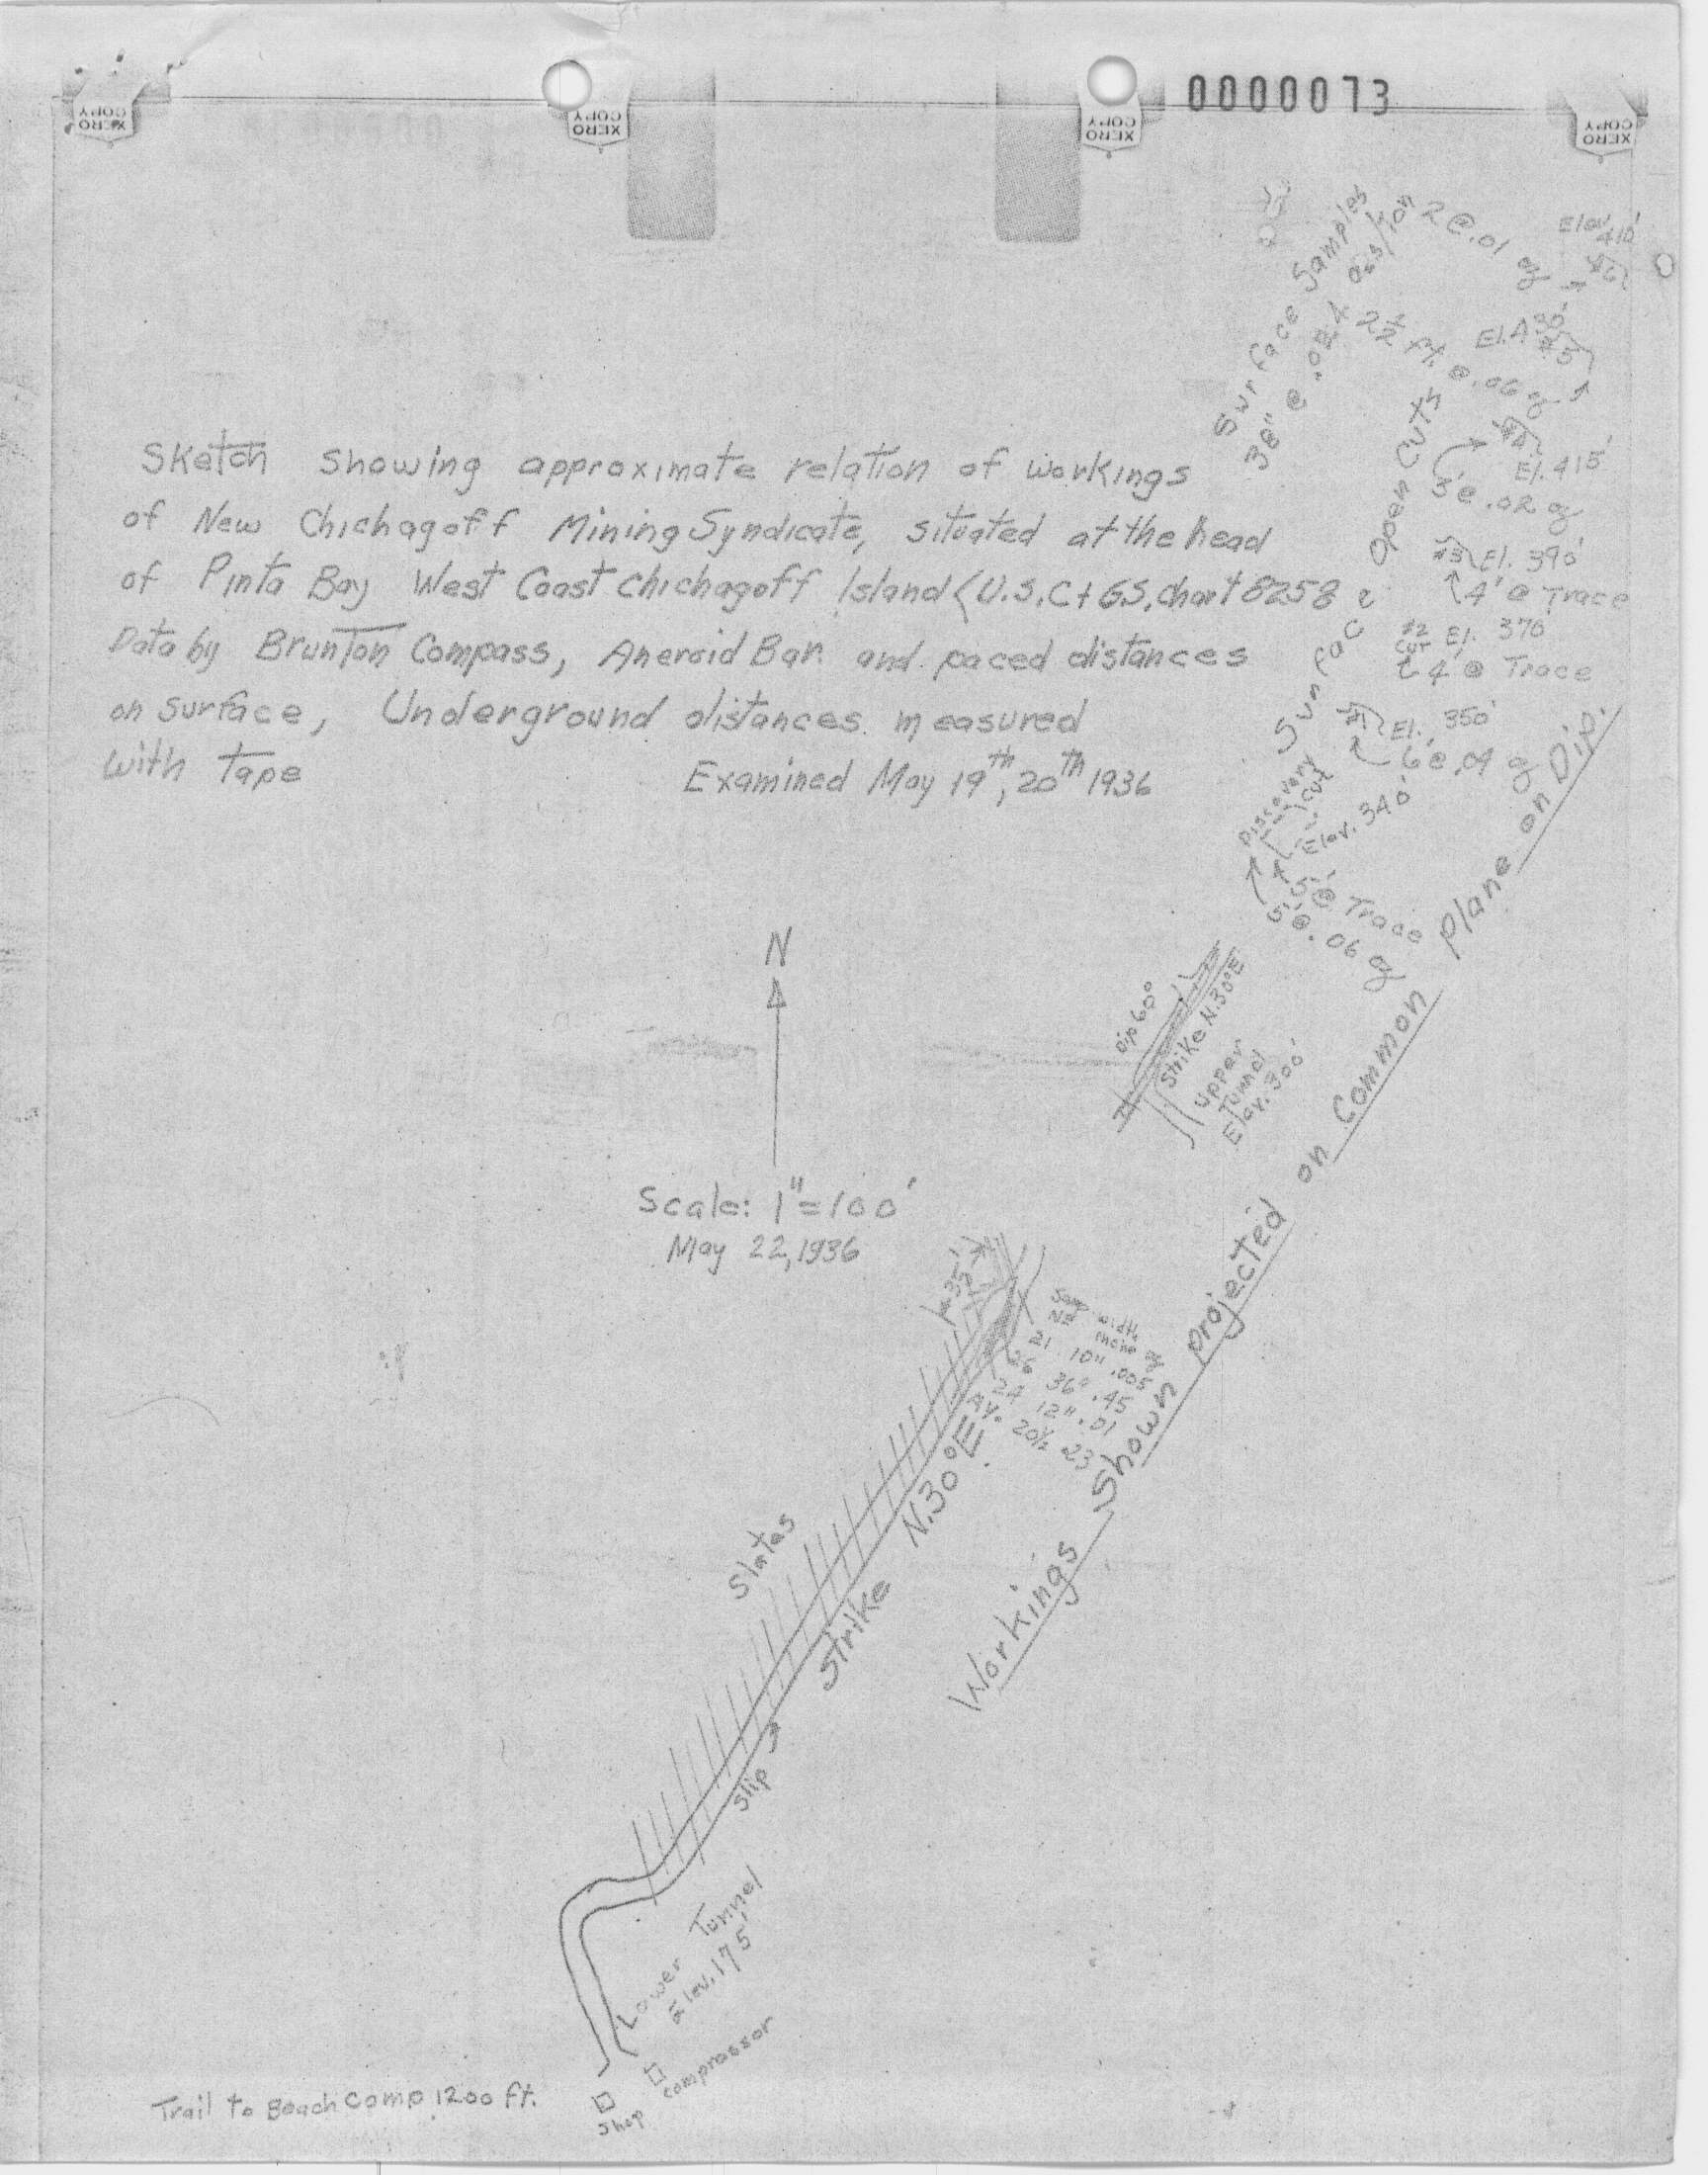 0000073
XERO COPY
XERO COPY
XERO COPY
XERO COPY
Sketch showing approximate relation of workings
of New Chichagoff Mining Syndicate, situated at the head
of Pinta Bay West Coast Chichagoff Island (U.S.C+G.S. chart 8258
Data by Brunton Compass, Aneroid Bar. and paced distances
on surface, Underground distances measured
with tape
Examined May 19th, 20th 1936
Surface Samples
38" @ .024 ozs/ton
2 @ .01 oz
Elev 410'
#6
2½ ft. @ .06 oz
#5
#4
El. 415'
3' @ .02 oz
Surface Open Cuts
#3 El. 390'
4' @ Trace
#2 Cut El. 370'
4' @ Trace
#1 El. 350'
6' @ .04 oz
Discovery Cut
Elev. 340'
5' @ Trace
5' @ .06 oz
Dip 60°
Strike N.30°E
Upper
Tunnel
Elev. 300'
N
Scale: 1"=100'
May 22, 1936
35'
width
21 10" .005
26 36" .45
24 12" .01
Av. 20½ 23
Slates
Strike N.30°E.
Slip
Workings Shown projected on Common plane on Dip.
Lower Tunnel
Elev. 175'
compressor
Shop
Trail to Beach Camp 1200 ft.